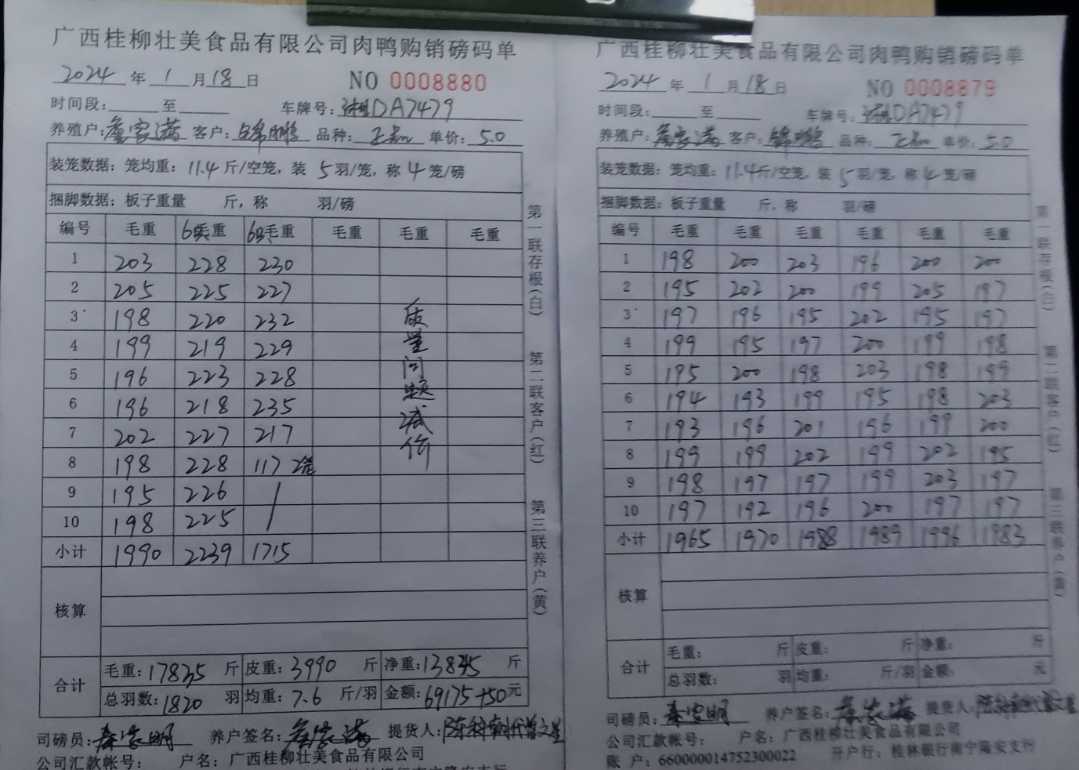 广西桂柳壮美食品有限公司肉鸭购销磅码单
2024 年 1 月 18 日 NO 0008880
时间段: 至 车牌号: DA7479
养殖户: 客户: 品种: 单价: 5.0
装笼数据: 笼均重: 11.4 斤/空笼, 装 5 羽/笼, 称 4 笼/磅
捆脚数据: 板子重量 斤, 称 羽/磅
编号 毛重 6只毛重 6只毛重 毛重 毛重 毛重
1 203 228 230
2 205 225 227
3 198 220 232
4 199 219 229
5 196 223 228
6 196 218 235
7 202 227 217
8 198 228 117 2笼
9 195 226 /
10 198 225 /
小计 1990 2239 1715
质量问题减价
核算
合计 毛重: 17835 斤 皮重: 3990 斤 净重: 13845 斤
总羽数: 1820 羽 均重: 7.6 斤/羽 金额: 69175+50 元
司磅员: 秦家明 养户签名: 提货人:
公司汇款帐号: 户名: 广西桂柳壮美食品有限公司
第一联存根(白) 第二联客户(红) 第三联养户(黄)
广西桂柳壮美食品有限公司肉鸭购销磅码单
2024 年 1 月 18 日 NO 0008879
时间段: 至 车牌号: DA7479
养殖户: 客户: 品种: 单价: 5.0
装笼数据: 笼均重: 11.4 斤/空笼, 装 5 羽/笼, 称 4 笼/磅
捆脚数据: 板子重量 斤, 称 羽/磅
编号 毛重 毛重 毛重 毛重 毛重 毛重
1 198 200 203 196 200 200
2 195 202 200 199 205 197
3 197 196 195 202 195 197
4 199 195 197 200 199 198
5 195 200 198 203 198 199
6 194 193 199 195 198 203
7 193 196 201 196 199 200
8 199 199 202 199 202 195
9 198 197 197 199 203 197
10 197 192 196 200 197 197
小计 1965 1970 1988 1989 1996 1983
核算
合计 毛重: 斤 皮重: 斤 净重: 斤
总羽数: 羽 均重: 斤/羽 金额: 元
司磅员: 秦家明 养户签名: 提货人:
公司汇款帐号: 户名: 广西桂柳壮美食品有限公司
账 户: 660000014752300022 开户行: 桂林银行南宁隆安支行
第一联存根(白) 第二联客户(红) 第三联养户(黄)